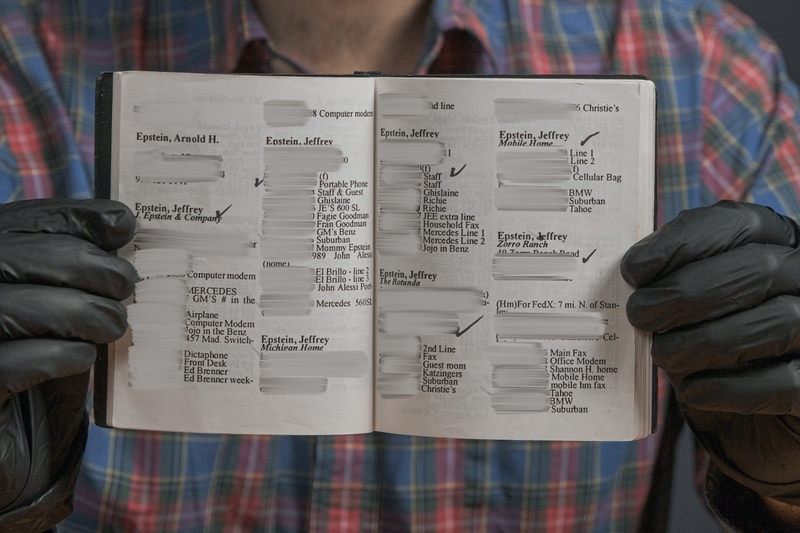 8 Computer modem
Epstein, Arnold H.
J. Epstein & Company
Computer modem
MERCEDES
GM'S # in the
Airplane
Computer Modem
Jojo in the Benz
457 Mad. Switch-
Dictaphone
Front Desk
Ed Brenner
Ed Brenner week-
Epstein, Jeffrey
(f)
Portable Phone
Staff & Guest
Ghislaine
JE'S 600 SL
Fagie Goodman
Fran Goodman
GM's Benz
Suburban
Mommy Epstein
989 John Aless
(pome)
El Brillo - line 2
El Brillo - line 3
John Alessi Port-
Mercedes 560SL
Epstein, Jeffrey
Michigan Home
nd line
Epstein, Jeffrey
(f)
Staff
Staff
Ghislaine
Richie
Richie
JEE extra line
Household Fax
Mercedes Line 1
Mercedes Line 2
Jojo in Benz
Epstein, Jeffrey
The Rotunda
2nd Line
Fax
Guest room
Katzingers
Suburban
Christie's
6 Christie's
Epstein, Jeffrey
Mobile Home
Line 1
Line 2
(f)
Cellular Bag
BMW
Suburban
Tahoe
Epstein, Jeffrey
Zorro Ranch
49 Zorro Ranch Road
(Hm)For FedX: 7 mi. N. of Stan-
Cel-
Main Fax
Office Modem
Shannon H. home
Mobile Home
mobile hm fax
Tahoe
BMW
Suburban